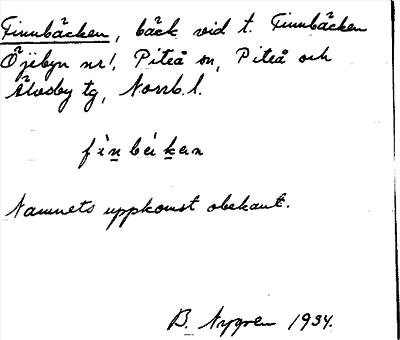 Finnbäcken, bäck vid t. Finnbäcken
Öjebyn nr 1, Piteå sn, Piteå och
Älvsby tg, Norrb. l.
Namnets uppkomst obekant.
B. Nygren 1934.